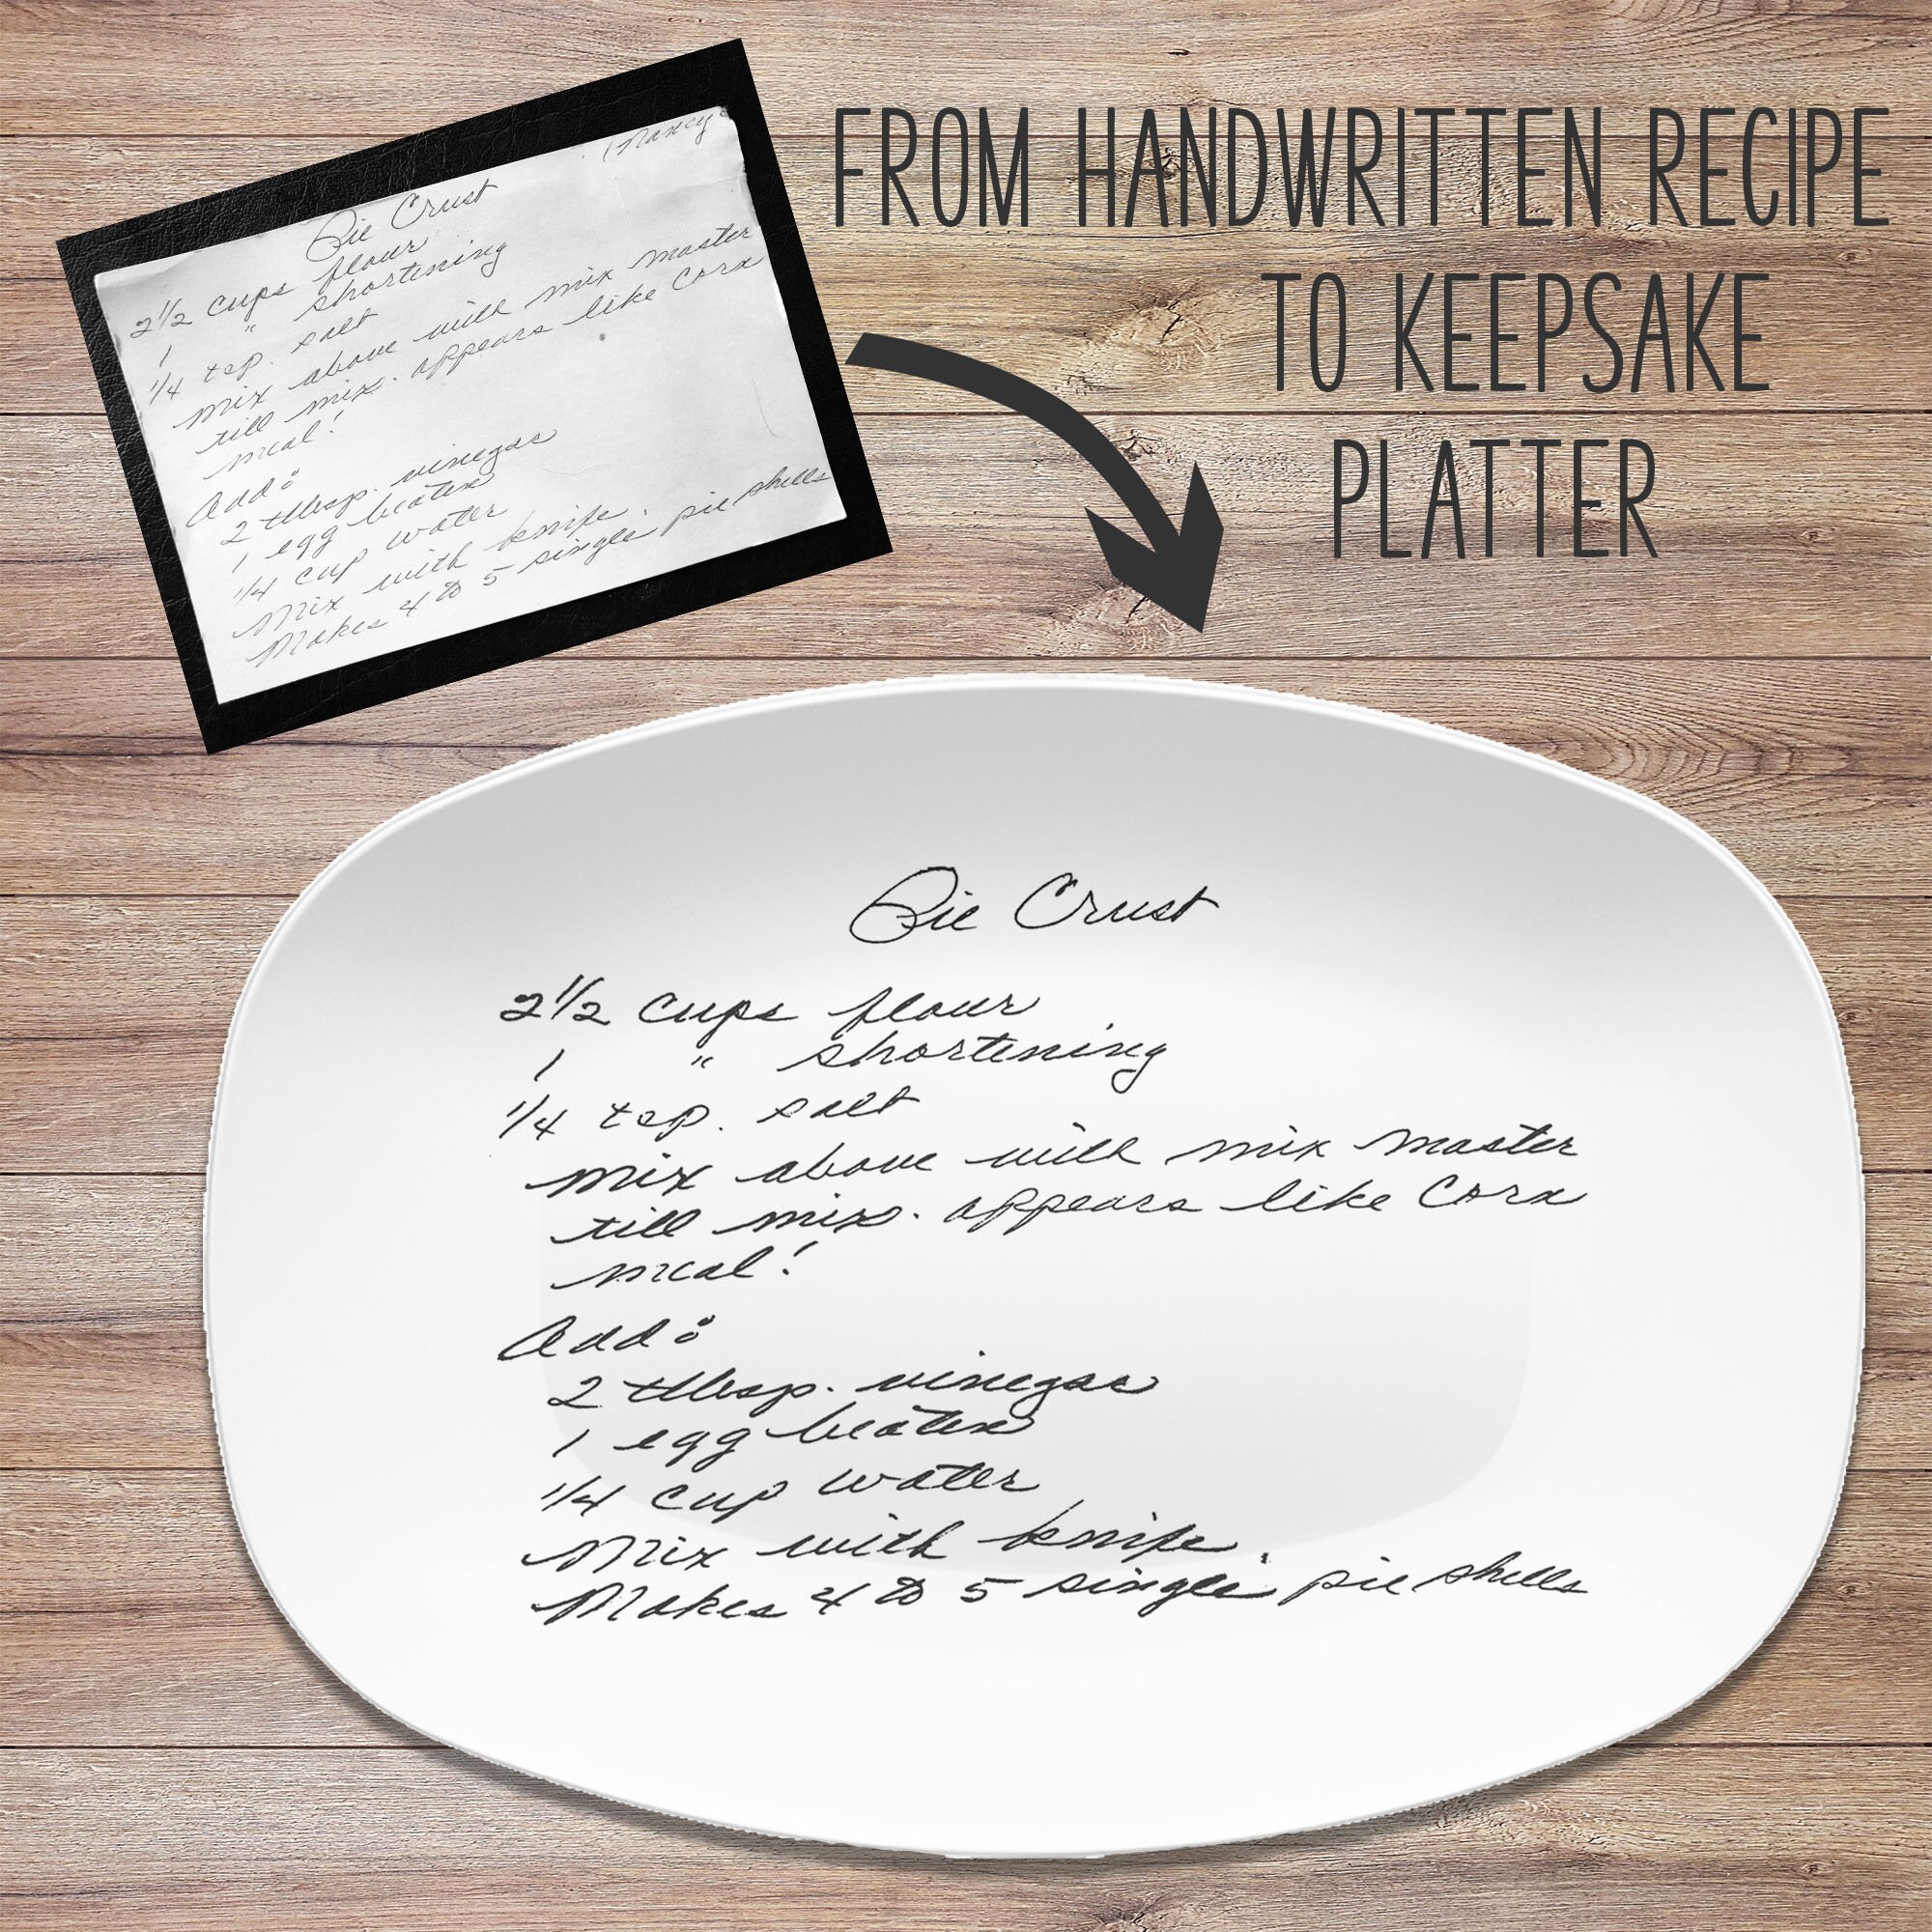 (Nancy's
Pie Crust
2 1/2 cups flour
1 " shortening
1/4 tsp. salt
mix above with mix master
till mix. appears like Corn
meal!
Add:
2 tblesp. vinegar
1 egg beaten
1/4 cup water
Mix with knife.
Makes 4 to 5 single pie shells
FROM HANDWRITTEN RECIPE
TO KEEPSAKE
PLATTER
Pie Crust
2 1/2 cups flour
1 " shortening
1/4 tsp. salt
mix above with mix master
till mix. appears like Corn
meal!
Add:
2 tblesp. vinegar
1 egg beaten
1/4 cup water
Mix with knife.
Makes 4 to 5 single pie shells